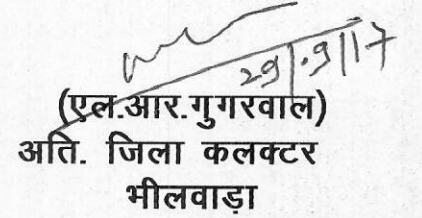 29/9/17
(एल.आर.गुगरवाल)
अति. जिला कलक्टर
भीलवाड़ा